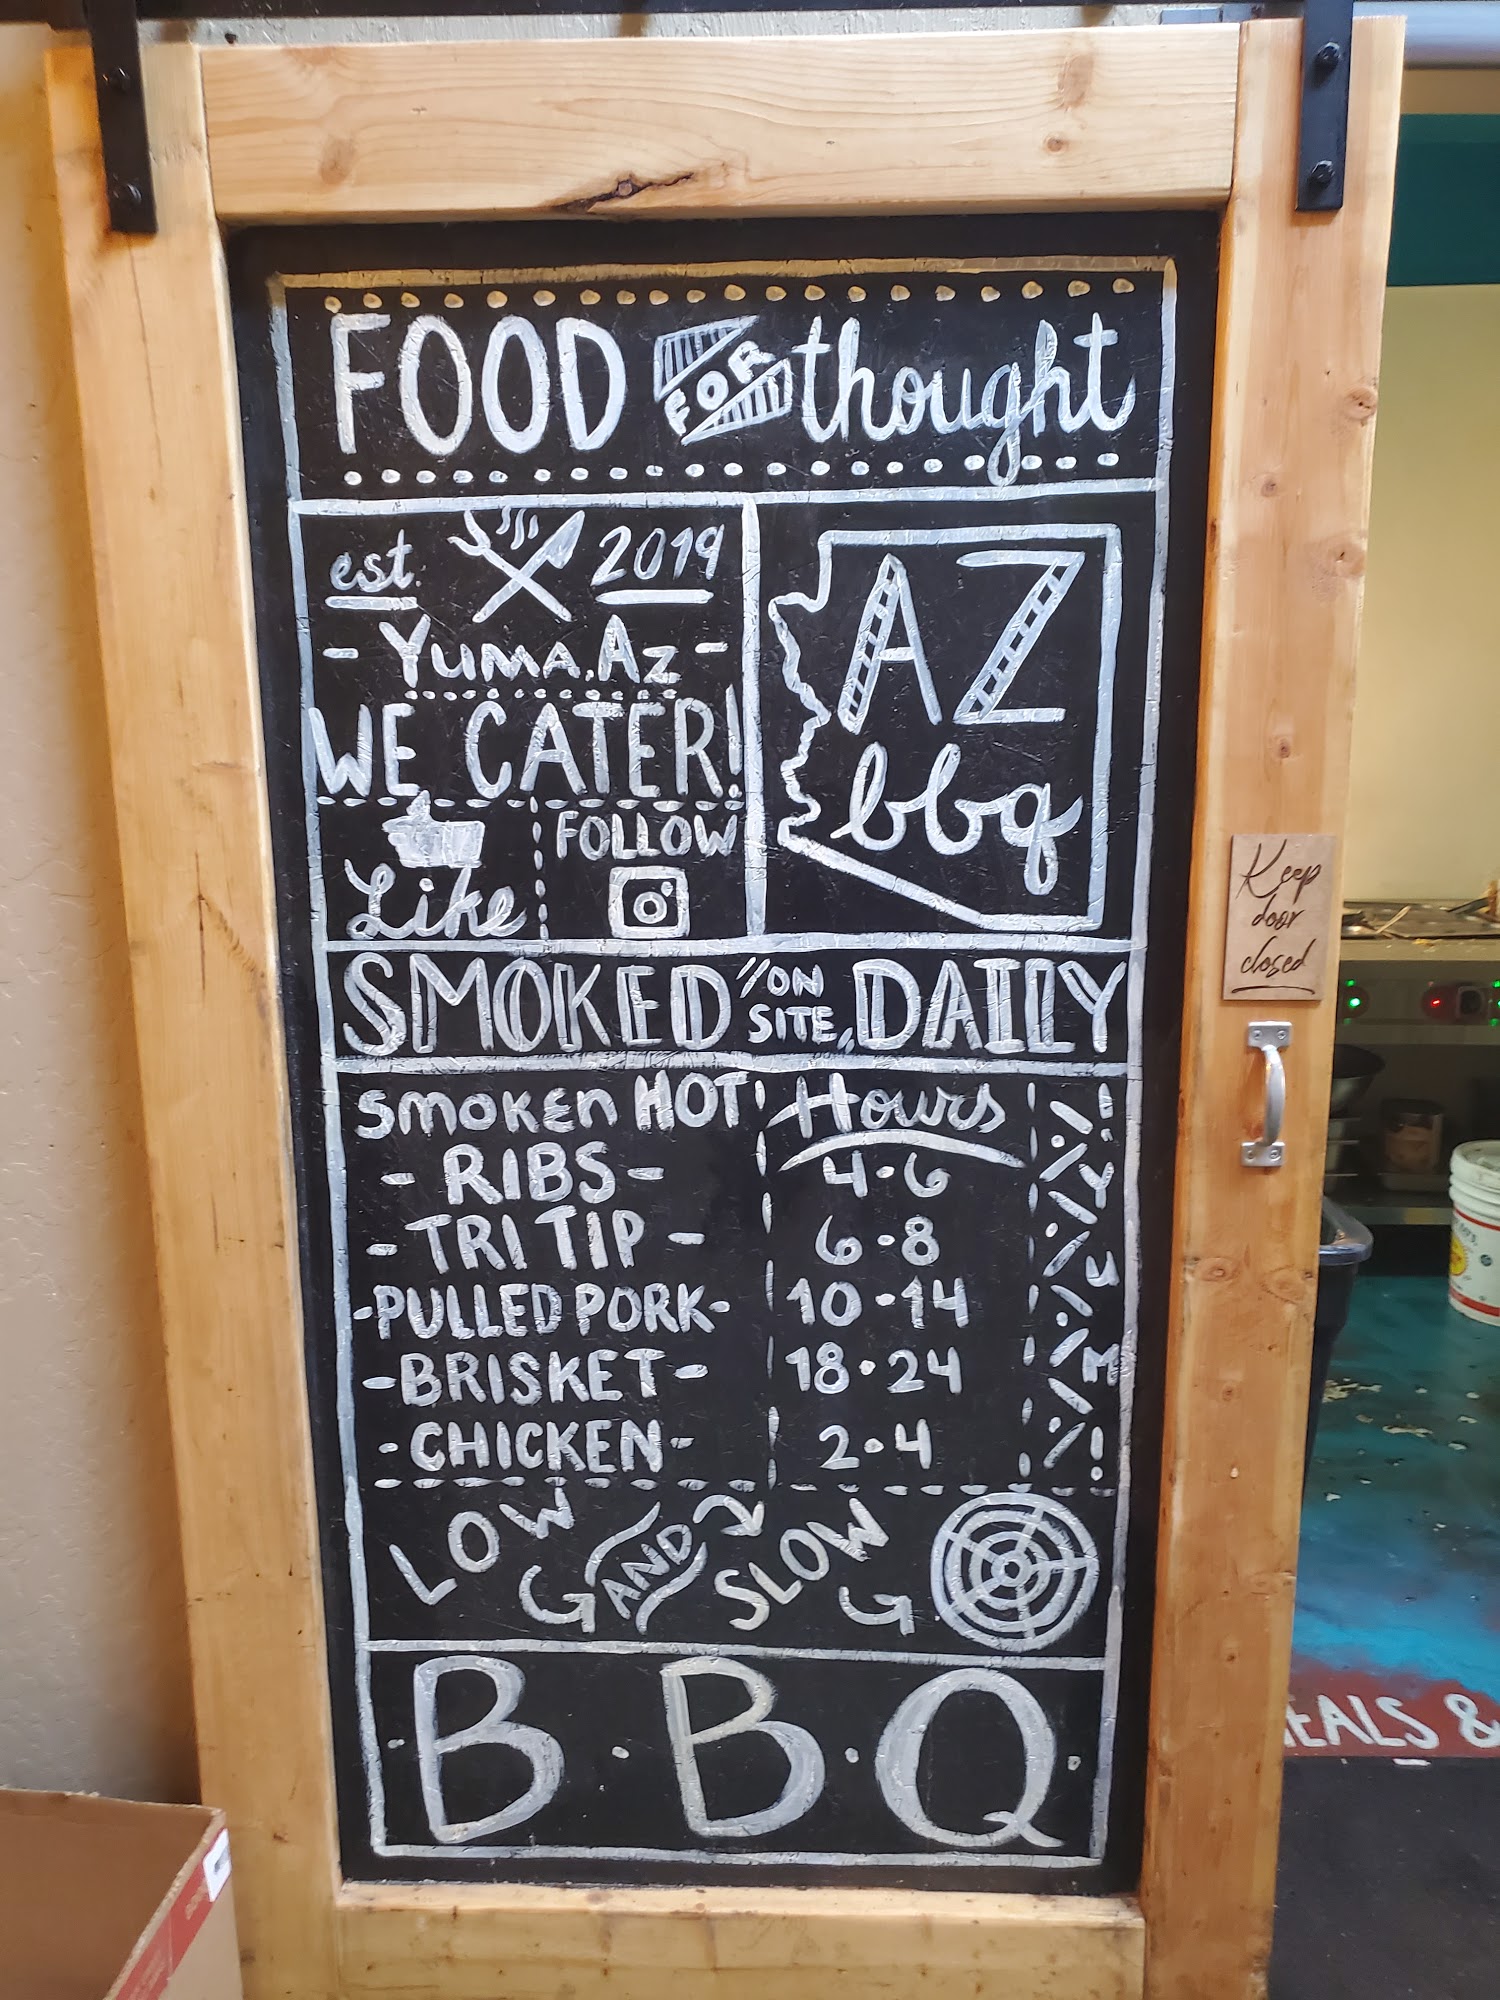 FOOD FOR thought
est. 2019
- Yuma, Az -
WE CATER!
Like
FOLLOW
AZ
bbq
SMOKED "ON SITE" DAILY
Smoken HOT
- RIBS -
- TRI TIP -
- PULLED PORK -
- BRISKET -
- CHICKEN -
Hours
4·6
6·8
10·14
18·24
2·4
YUM!
LOW AND SLOW
B·BQ
Keep
door
closed
EALS &